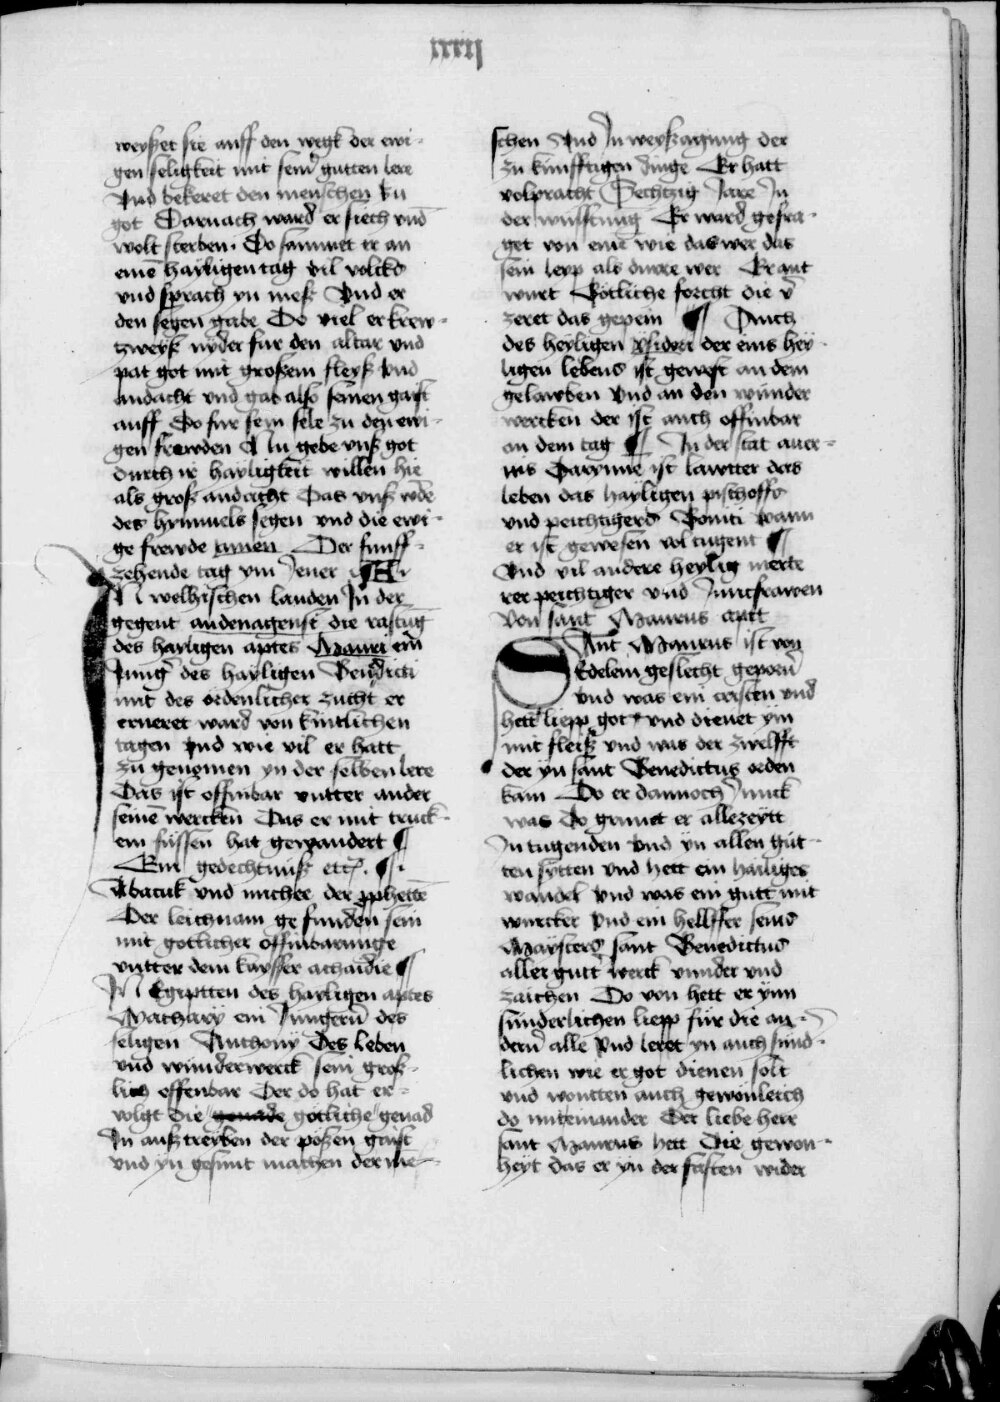 xxxij
weyßet sie auff den wegk der ewi-
gen seligkeit mit seinr̄ gutten lere
Vnd bekeret den menschen zu
got Darnach ward er siech vnd
wolt sterben. Do sammet er an
einē hayligen tag vil volcks
vnd sprach yn meß Vnd er
den segen gabe Do viel er krew-
tzweyß nyder fur den altar vnd
pat got mit großem fleyß Vnd
andacht vnd gab also seinen gaist
auff Do fur sein sele zu den ewi-
gen frewden Nu gebe vnß got
durch ir hayligkeit willen hie
als groß andacht Das vnß werde
des hymmels segen vnd die ewi-
ge frewde amen Der funff-
zehende tag vm Jener
IN welhischen landen In der
gegent andenagenst die rastūg
des hayligen aptes Mauri ein
Jungr̄ des hayligen Benedicti
mit des ordenlicher zucht er
erneret ward von kintlichen
tagen vnd wie vil er hatt
zu genomen yn der selben lere
Das ist offinbar vntter ander
seinē wercken Das er mit truck-
em füssen hat gewandert ¶
Ein gedechtnuß etc. ¶
Abacuk vnd michee der pphettē
Der leichnam ge funden sein
mit gotlicher offinbarunge
vntter dem kaysser achaidie ¶
IN Egiptten des hayligen aptes
Macharÿ ein Jungern̄ des
seligen Anthonÿ Des leben
vnd wunderwerck sein groß-
lich offenbar Der do hat er-
volgt die genade gotliche genad
In außtreyben der poßen gaist
vnd yn gesunt machen der mē-
schen Vnd In weyßagung der
zu künfftigen dinge Er hatt
volpracht Sechtzig Jare In
der wusstung Er ward gefra-
get von einē wie das wer das
sein leyp als durre wer Er ant
wurt Götliche forcht die v̄
zeret das gepein ¶ Auch
des heyligen ysidori der eins hey-
ligen lebens ist gewest an dem
gelawben Vnd an den wunder
wercken der ist auch offinbar
an dem tag ¶ In der stat auer-
nis Darynne ist lawtter das
leben das hayligen pischoffs
vnd peichtigers Boniti wann
er ist gewesen vol tugent ¶
Vnd vil andere heylig merte
rer peichtiger vnd Junckfrawen
Von sant Maurus aptt
SAnt Maurus ist von
Edelem geslecht geporn̄
vnd was ein cristen vnd
hett liepp got vnd dienet ym
mit fleiß vnd was der zwelfft
der yn sant Benedictus orden
kam Do er dannoch Junck
was Do grunet er allezeytt
In tugenden vnd yn allen gut-
ten sytten vnd hett ein hailiges
wandel vnd was ein gutt mit
wurcker vnd ein hellffer seins
Maysters sant Benedictus
aller gutt werck wunder vnd
zaichen Do von hett er ynn
sunderlichen liepp für die an-
dern̄ alle Vnd leret yn auch sund-
lichen wie er got dienen solt
vnd wontten auch gewonleich
do miteinander Der liebe herr
sant Maurus hett Die gewon-
heyt das er yn der fasten wider